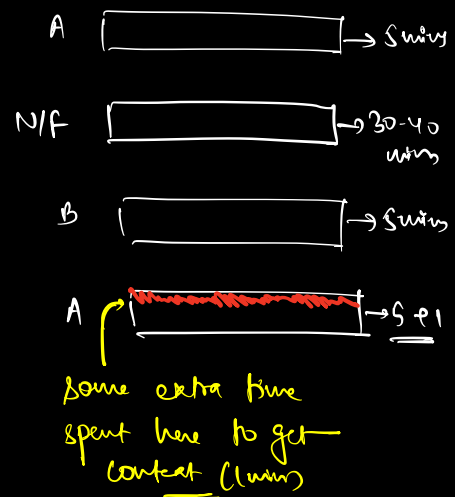 A → 5 mins
N/F → 30-40
mins
B → 5 mins
A → 5+1
some extra time
spent here to get
context (1 min)